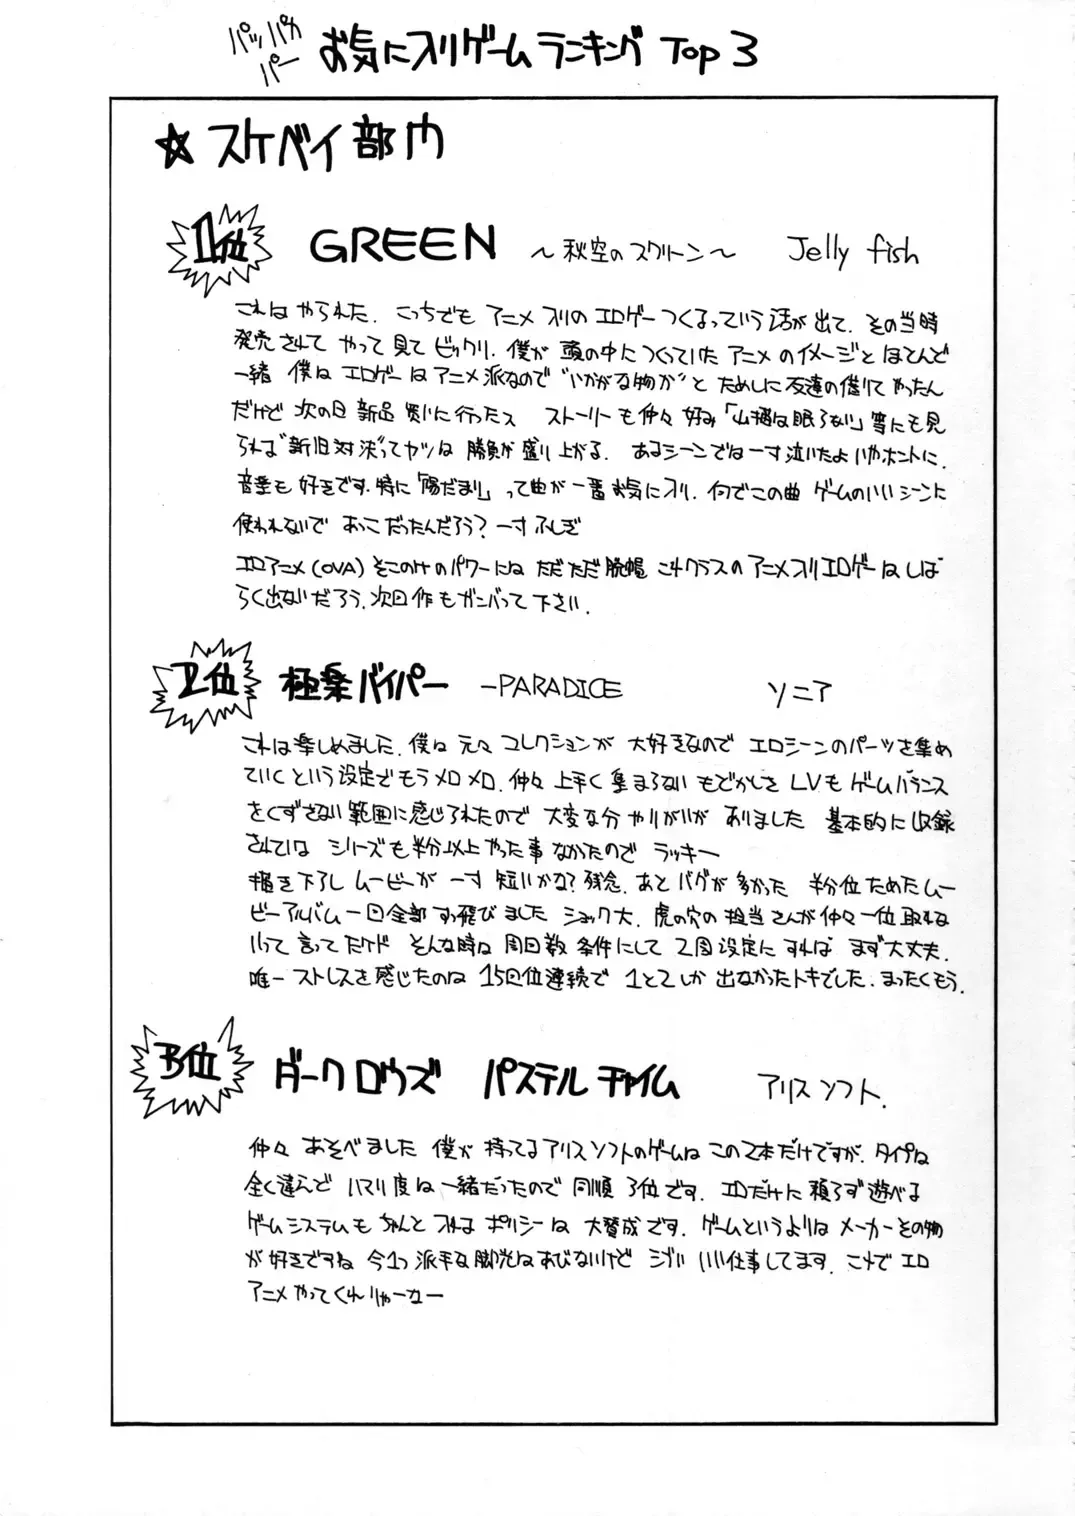 パッパカパー お気に入りゲームランキング Top 3
☆スケベイ部門
1位 GREEN ～秋空のスクリーン～ Jelly fish
これは やられた. こっちでも アニメ入りの エロゲーつくるっていう話が出て. その当時
発売されて やって見て ビックリ. 僕が 頭の中につくっていた アニメのイメージと ほとんど
一緒 僕は エロゲーは アニメ派なので "いかがな物か"と ためしに友達の借りて やったん
だけど 次の日 新品 買いに行ったス ストーリーも仲々 好み「山猫は眠らない」等にも見
られる"新旧対決"ってヤツは 勝負が盛り上がる. あるシーンでは一寸泣いたよ いやホントに.
音楽も 好きです. 特に「陽だまり」って曲が一番お気に入り. 何でこの曲 ゲームのいいシーンに
使われないで あっこだったんだろう? 一寸ふしぎ
エロアニメ(OVA)そこのけのパワーには ただただ脱帽 こけクラスのアニメ入りエロゲーは しば
らく出ないだろう. 次回作もガンバって下さい.
2位 極楽バイパー -PARADICE ソニア
これは楽しめました. 僕は 元々コレクションが 大好きなので エロシーンのパーツを集め
ていくという設定でもうメロメロ. 仲々上手く集まらない もどかしさ LVも ゲームバランス
をくずさない範囲に感じられたので 大変な分やりがいが ありました 基本的に収録
されている シリーズも半分以上やった事なかったので ラッキー
描き下ろし ムービーが 一寸 短いかな? 残念. あと バグが多かった 半分位ためたムー
ビーアルバム一回全部すっ飛びました ショック大. 虎の穴の担当さんが仲々一位取れな
いって言ってたけど そんな時は 周回数 条件にして 2周設定に すれば まず大丈夫.
唯一 ストレスを感じたのは 15回位連続で 1と2しか 出なかったトキでした. まったくもう.
3位 ダークロウズ パステルチャイム アリスソフト.
仲々 あそべました 僕が 持ってるアリスソフトのゲームは この2本だけですが. タイプは
全く違んど ハマリ度は一緒だったので 同順 3位です. エロだけに頼らず遊べる
ゲームシステムも ちゃんと 入れる ポリシーは 大賛成です. ゲームというよりは メーカーその物
が好きですね 今1つ派手な脚光は あびないけど シブい いい仕事してます. これで エロ
アニメやってくれりゃーなー